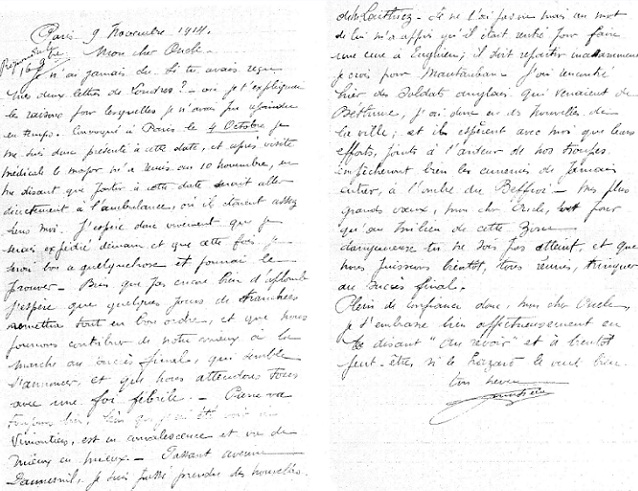 Paris 9 Novembre 1914.
Mon cher Oncle.
Je n'ai jamais su si tu avais reçu
mes deux lettres de Londres? - où je t'expliquais
les raisons pour lesquelles je n'avais pu rejoindre
en temps. Convoqué à Paris le 4 Octobre je
me suis donc présenté à cette date, et après visite
médicale le major m'a remis au 10 novembre, en
me disant que partir à cette date serait aller
directement à l'ambulance, où ils étaient assez
sans moi. J'espère donc vivement que je
serai expédié demain et que cette fois je
serai bon à quelquechose et pourrai le
prouver. Bien que pas encore bien d'aplomb
j'espère que quelques jours de tranchées
remettra tout en bon ordre, et que nous
pourrons contribuer de notre mieux à la
marche au succès final, qui semble
s'annoncer, et que nous attendons tous
avec une foi fébrile. - Pierre va
toujours bien,
Vimoutiers, est en convalescence et va de
mieux en mieux. - Passant avenue
Daumesnil, je suis passé prendre des nouvelles
de - Je ne l'ai pas vu mais un mot
de lui m'a appris qu'il était rentré pour faire
une cure à Enghien; il doit repartir incessamment
je crois pour Montauban - J'ai rencontré
hier des soldats anglais qui venaient de
Béthune, j'ai donc eu des nouvelles de
la ville; et ils espèrent avec moi que leurs
efforts, joints à l'ardeur de nos troupes
empêcheront bien les ennemis de jamais
entrer, à l'ombre du Beffroi - Mes plus
grands vœux, mon cher Oncle, sont pour
qu'au milieu de cette zone
dangereuse tu ne sois pas atteint, et que
nous puissions bientôt, tous réunis, trinquer
au succès final.
Plein de confiance donc, mon cher Oncle,
je t'embrasse bien affectueusement en
te disant "au revoir" et à bientôt
peut-être, si le hasard le veut bien
ton neveu